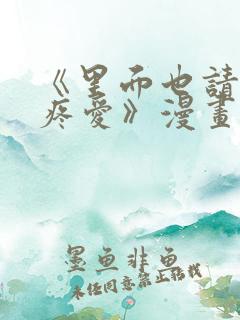 《里而也請
疼愛》漫畫
墨魚非魚
未经同意禁止转载